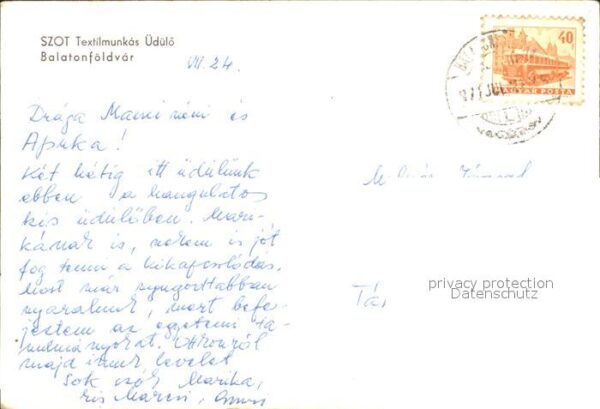 SZOT Textilmunkás Üdülő
Balatonföldvár
VII. 24.
40
MAGYAR POSTA
971 JUL
Drága Manci néni és
Apuka!
Két hétig itt üdülünk
ebben a hangulatos
kis üdülőben. Mari-
kának is, nekem is jót
fog tenni a kikapcsolódás.
Most már nyugodtabban
nyaralunk, mert befe-
jeztem az egyetemi ta-
nulmányokat. Otthonról
majd írunk levelet
Sok csók Marika,
kis Marcsi,
privacy protection
Datenschutz